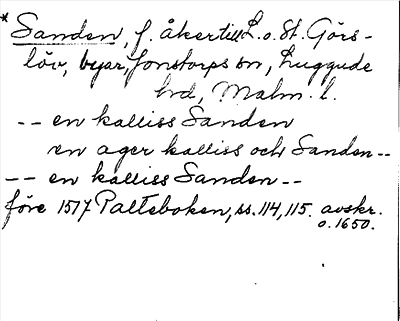 * Sanden, f. åker till L. o. St. Görs-
löv, byar, Jonstorps sn, Luggude
hd, Malm. l.
-- en kalliss Sanden
en ager kalliss och Sanden--
-- en kalliss Sanden --
före 1517 Palteboken, ss. 114, 115. avskr.
o. 1650.